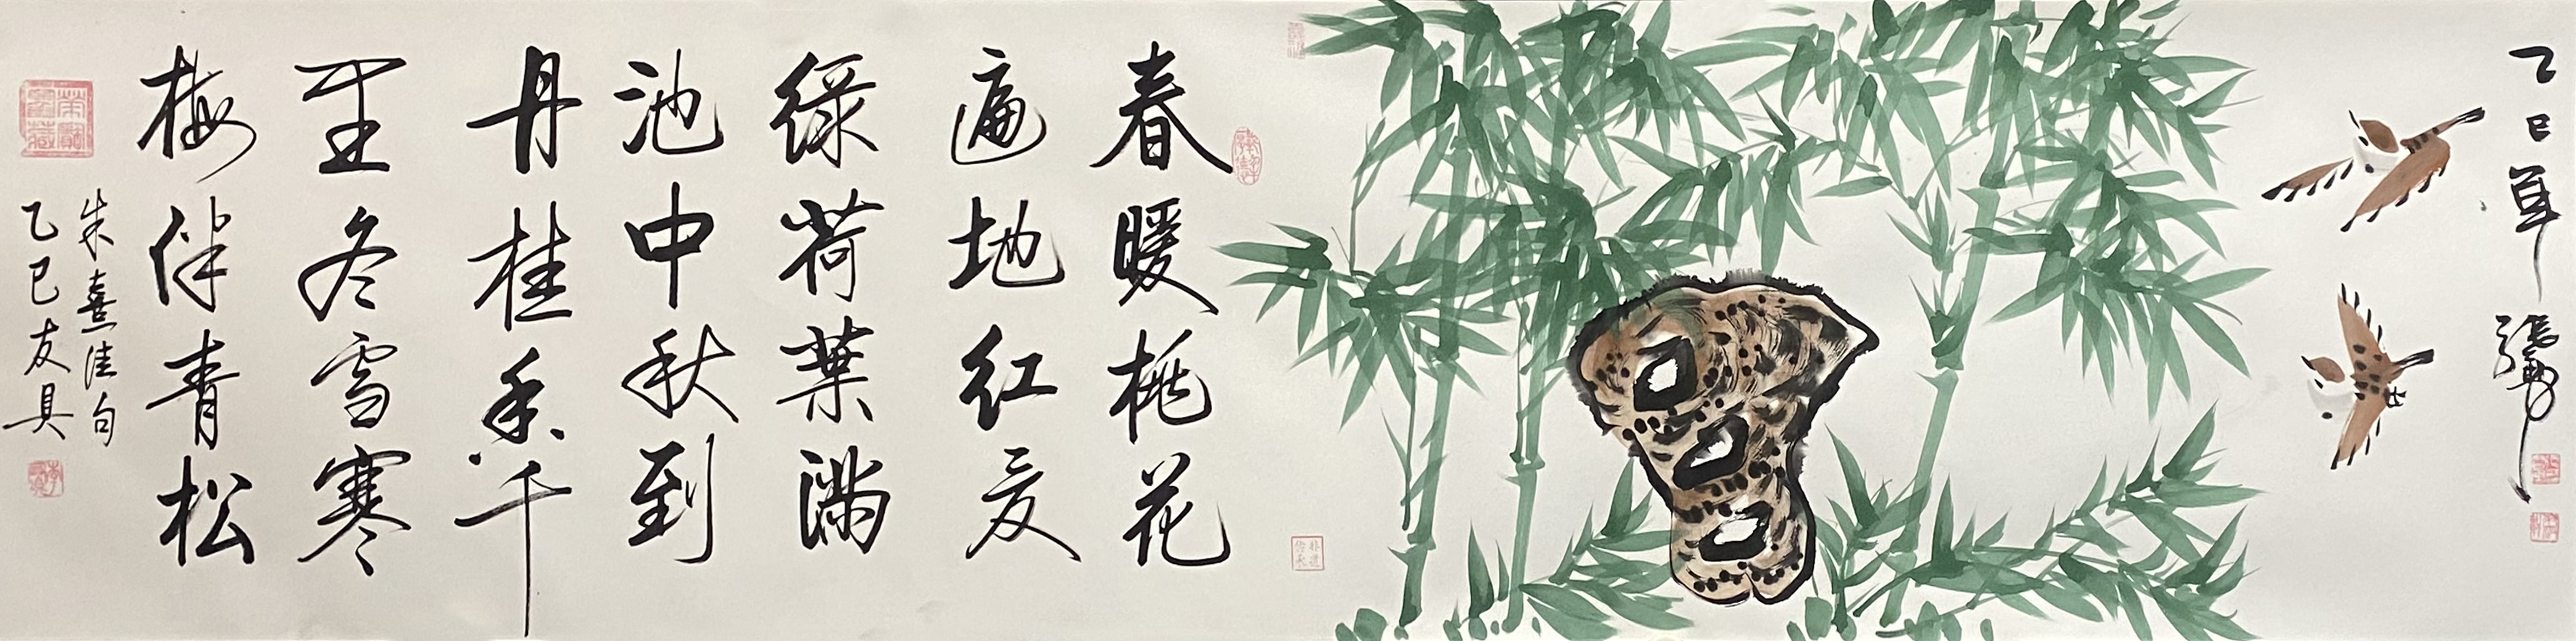 乙巳年
春暖桃花
遍地红夏
绿荷葉满
池中秋到
丹桂香千
里冬雪寒
梅伴青松
朱熹佳句
乙巳友具